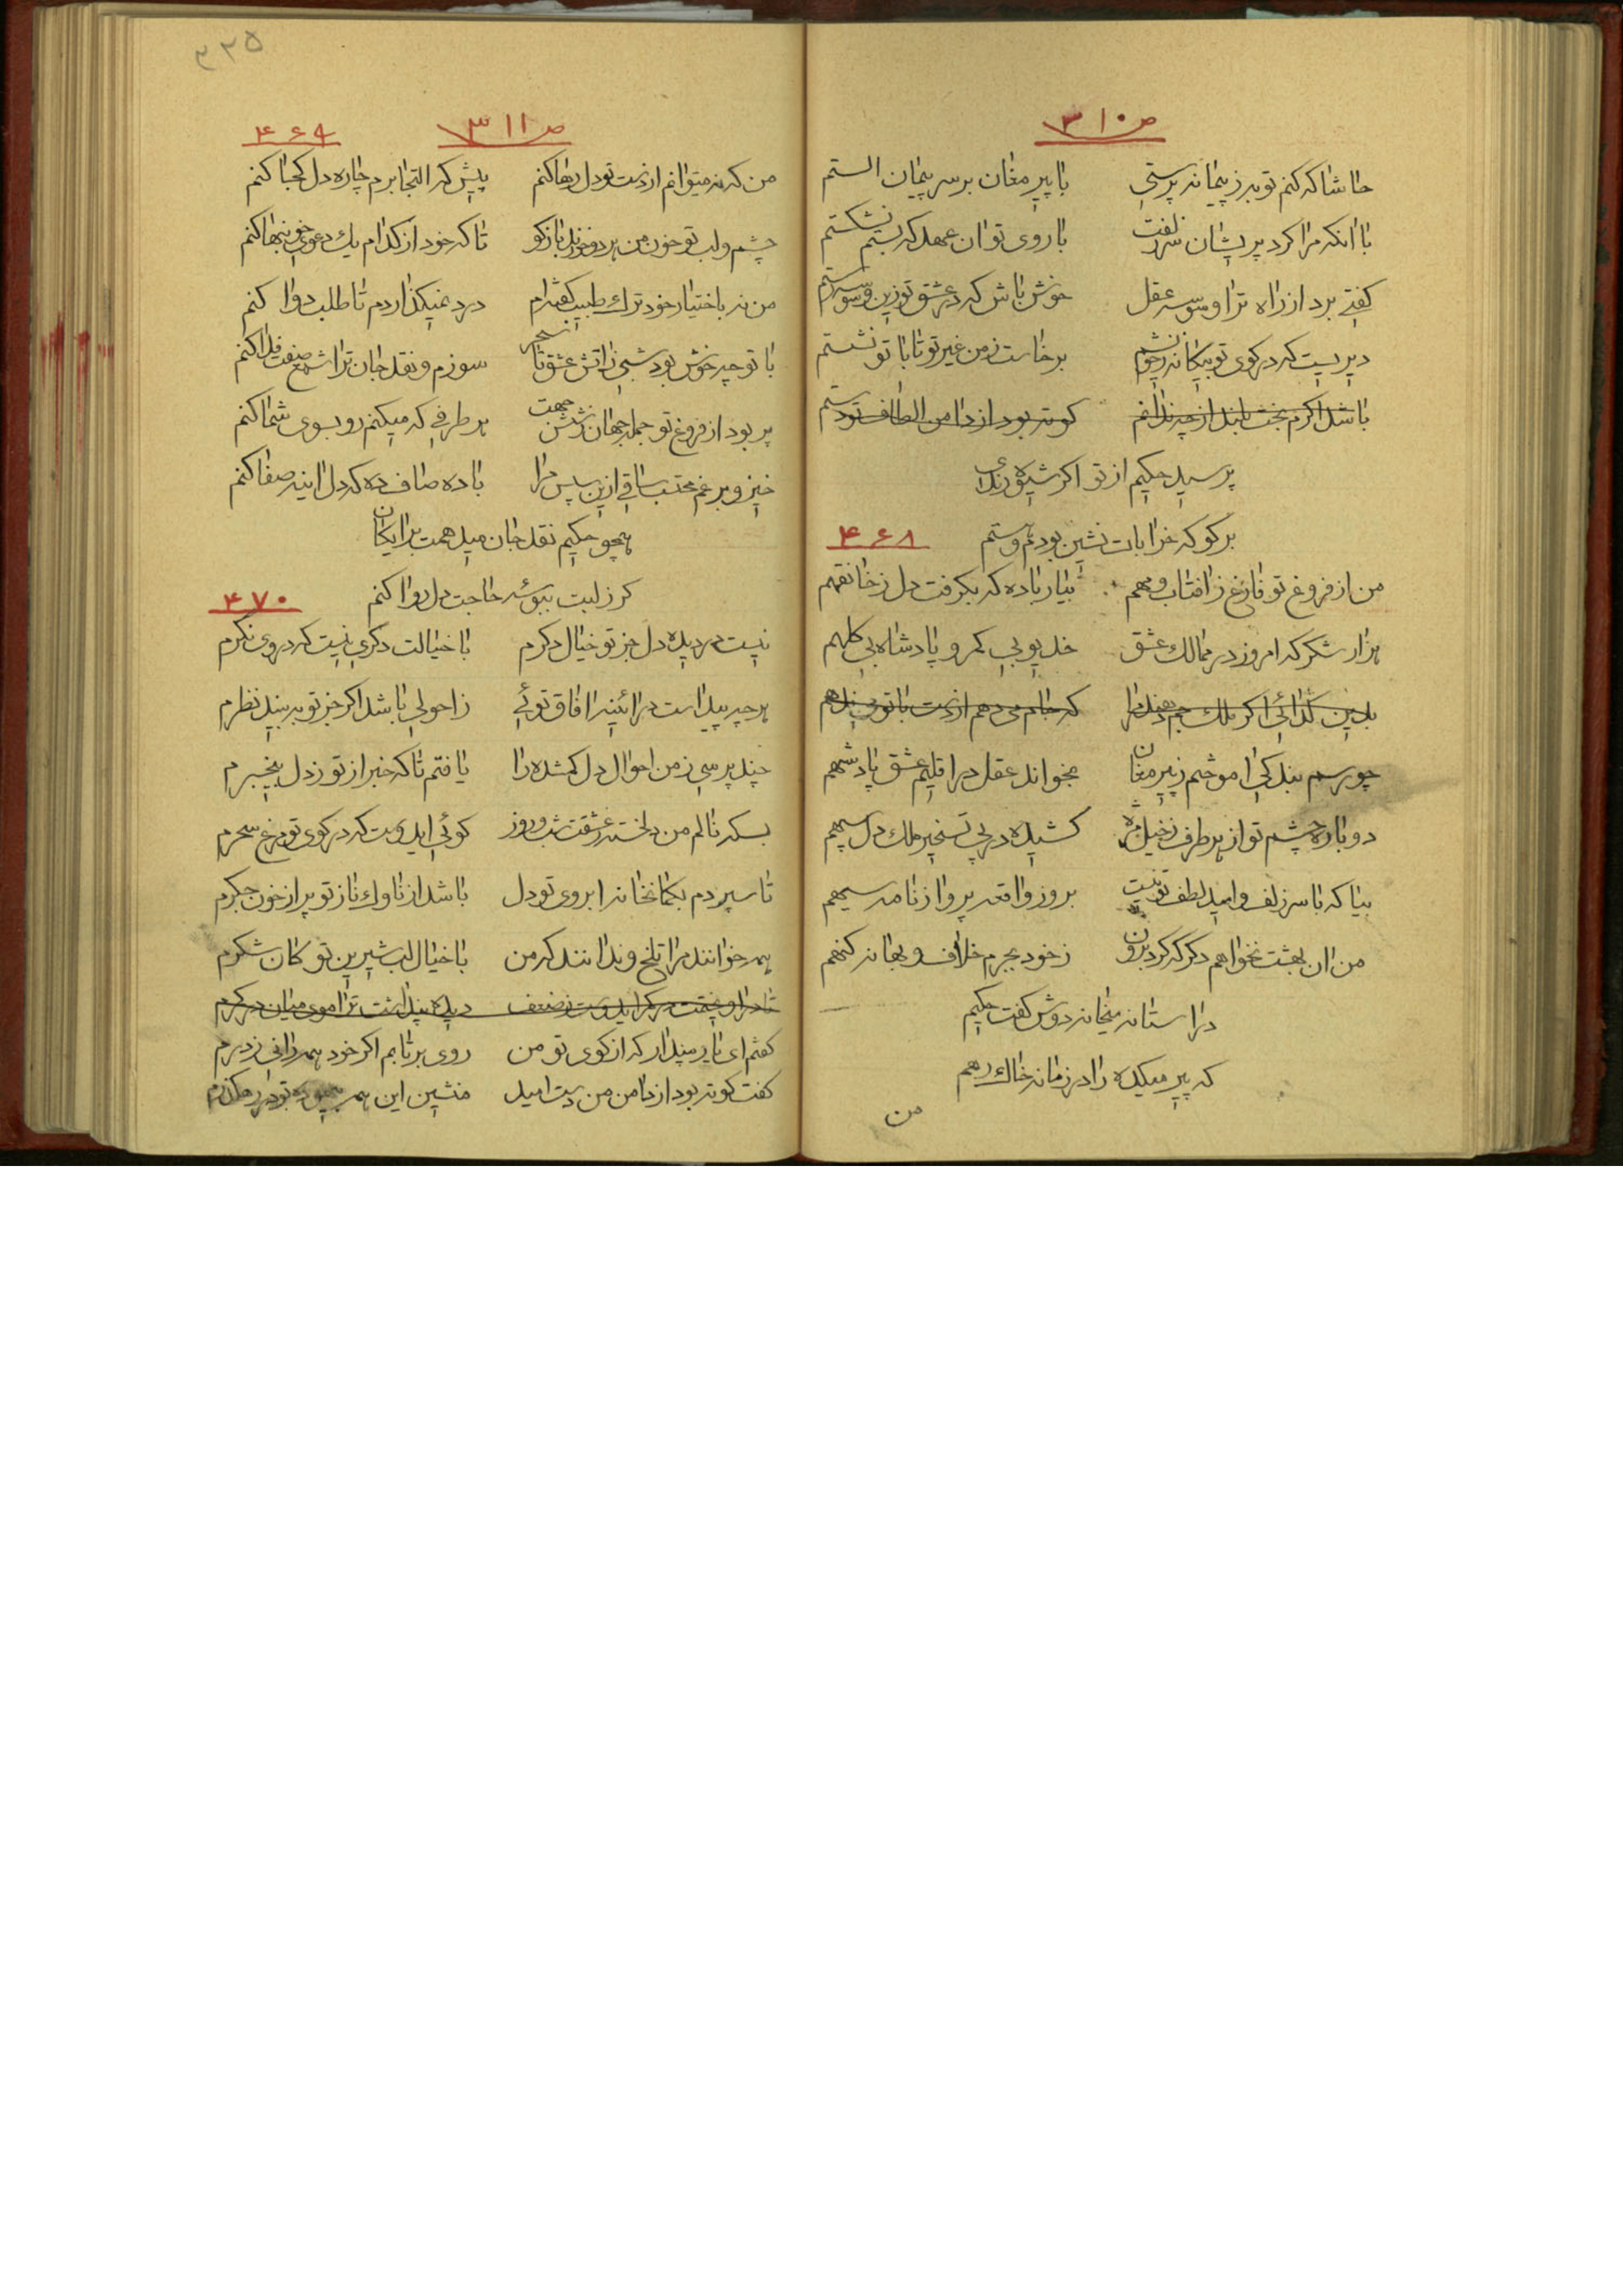 ص ۳۱۰
حاشا که کنم توبه ز پیمانه پرستی با پیر مغان بر سر پیمان الستم
با انکه مرا کرد پریشان سر زلفت با روی تو ان عهد که بستم نشکستم
گفتی برد از راه ترا وسوسه عقل خوش باش که در عشق تو زین وسوسه رستم
دیریست که در کوی تو بیگانه ز خویشم برخاست ز من غیر تو تا با تو نشستم
باشد اگرم بخت بلند از چه ندانم کوته بود از دامن الطاف تو دستم
پرسید حکیم از تو اگر شیوه رندی
برگو که خرابات نشین بودم و مستم
۴۶۸
من از فروغ تو فارغ ز افتاب و مهم بیار باده که بگرفت دل ز خانقهم
هزار شکر که امروز در ممالک عشق خدیو بی کمر و پادشاه بی کلهم
بدین گدائی اگر ملک جم دهند مرا که جام می دهم از دست با تو
چو رسم بندگی اموختم ز پیر مغان بخواند عقل در اقلیم عشق پادشهم
دوباره چشم تو از هر طرف ز خیل مژه کشیده در پی تسخیر ملک دل سپهم
بیا که با سر زلف و امید لطف تو نیست بروز واقعه پروا ز نامه سیهم
من ان بهشت نخواهم دگر که کرد برون ز خود بجرم خلاف و بهانه گنهم
در استانه میخانه دوش گفت حکیم
که پیر میکده را در زمانه خاک رهم
من
۳۳۵
ص ۳۱۱
۴۶۹
من که نه میتوانم از دست تو دل رها کنم پیش که التجا برم چاره دل کجا کنم
چشم و لب تو خون من هر دو خورند بازگو تا که خود از کدام یک دعوی خونبها کنم
من نه باختیار خود ترک طبیب گفته‌ام درد نمیگذاردم تا طلب دوا کنم
با تو چه خوش بود شبی ز اتش عشق تا سحر سوزم و نقد جان ترا شمع صفت فدا کنم
پر بود از فروغ تو جمله جهان ز شش جهت هر طرفی که میکنم رو بسوی شما کنم
خیز و برغم محتسب ساقی ازین سپس مرا باده صاف ده که دل اینه صفا کنم
همچو حکیم نقد جان میدهمت برایگان
گر ز لبت ببوسه حاجت دل روا کنم
۴۷۰
نیست در دیده دل جز تو خیال دگرم با خیالت دگری نیست که در وی نگرم
هر چه پیداست در ائینه افاق توئی ز احولی باشد اگر جز تو به بیند نظرم
چند پرسی ز من احوال دل گمشده را یافتم تا که خبر از تو ز دل بیخبرم
بسکه نالم من دلخسته ز عشقت شب و روز گوئی ایدوست که در کوی تو مرغ سحرم
تا سپردم بکمانخانه ابروی تو دل باشد از ناوک ناز تو پر از خون جگرم
همه خوانند مرا تلخ و ندانند که من با خیال لب شیرین تو کان شکرم
ایدوست ز ضعف دیده پنداشت ترا موی میان در کمرم
گفتم ای یار مپندار که از کوی تو من روی برتابم اگر خود همه رانی ز درم
گفت کوته بود از دامن من دست امید منشین این همه بیهوده تو در رهگذرم